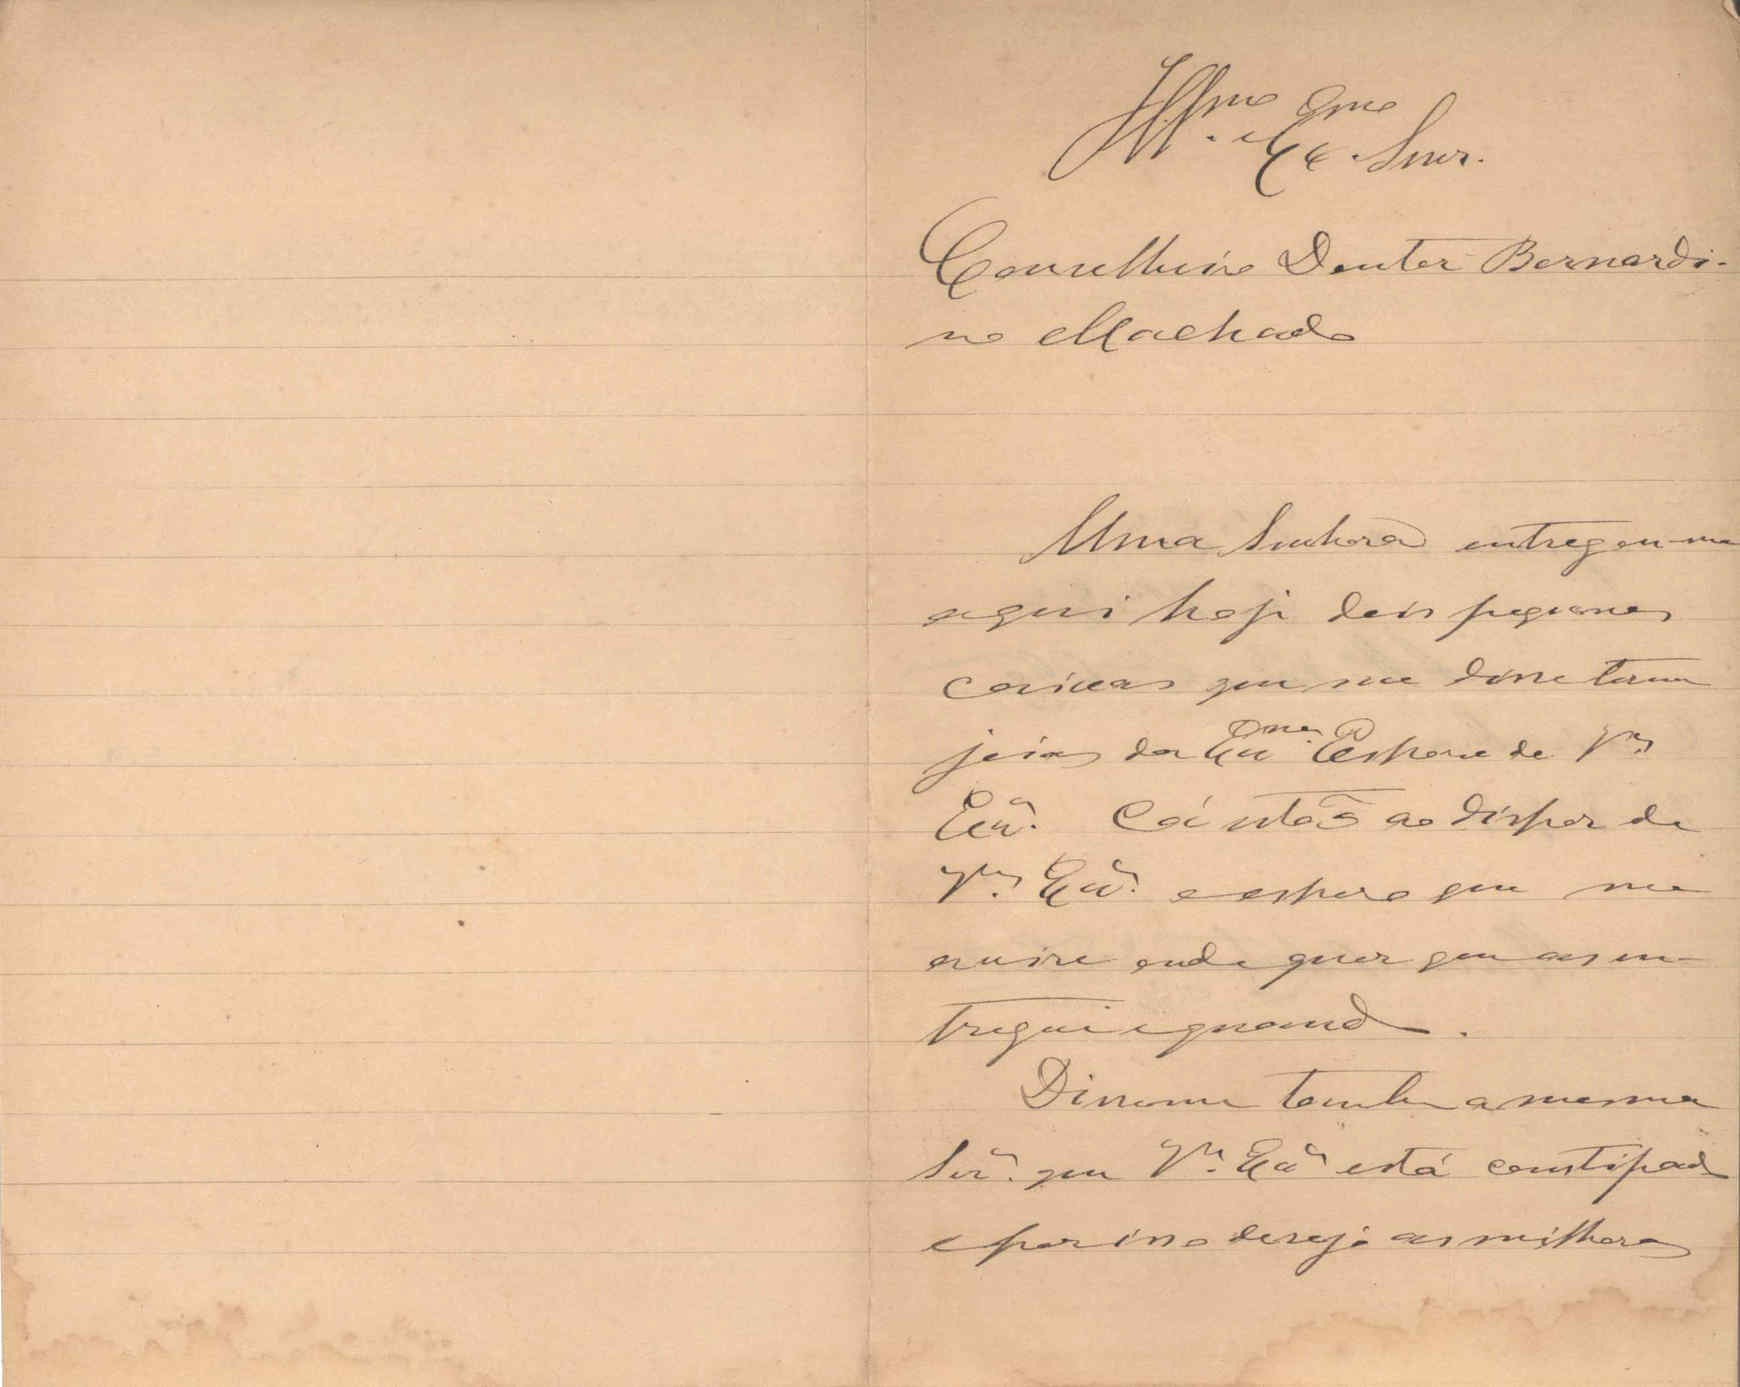 Illmo e Exmo Snr.
Conselheiro Doutor Bernardi-
no Machado
Uma Senhora entregou-me
aqui hoje dois pequenos
caixas que me disse terem
joias da Exma Espose de Va
Exa. Cá estão ao dispor de
Va. Exa. e espero que me
avise onde quer que as en-
tregue e quando.
Disse-me tambem a mesma
Snra. que Va. Exa está constipado
e por isso desejo as milhoras